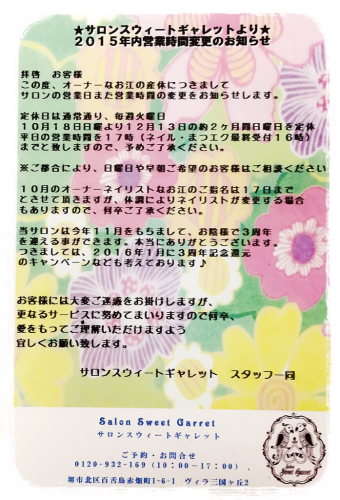 ★サロンスウィートギャレットより★
2015年内営業時間変更のお知らせ
拝啓 お客様
この度、オーナーなお江の産休につきまして
サロンの営業日また営業時間の変更をお知らせします。
定休日は通常通り、毎週火曜日
10月18日日曜より12月13日の約2ヶ月間日曜日を定休
平日の営業時間を17時(ネイル・まつエク最終受付16時)
までと致しますので、予めご了承ください。
※ご都合により、日曜日や早朝ご希望のお客様はご相談ください
10月のオーナーネイリストなお江のご指名は17日まで
とさせて頂きますが、体調によりネイリストが変更する場合
もありますので、何卒ご了承ください。
当サロンは今年11月をもちまして、お陰様で3周年
を迎える事ができます。本当にありがとうございます。
つきましては、2016年1月に3周年記念還元
のキャンペーンなども考えております♪
お客様には大変ご迷惑をお掛けしますが、
更なるサービスに努めてまいりますので何卒、
愛をもってご理解いただけますよう
宜しくお願い致します。
サロンスウィートギャレット スタッフ一同
Salon Sweet Garret
サロンスウィートギャレット
ご予約・お問合せ
0120-932-169(10:00-17:00)
堺市北区百舌鳥赤畑町1-6-1 ヴィラ三国ヶ丘2